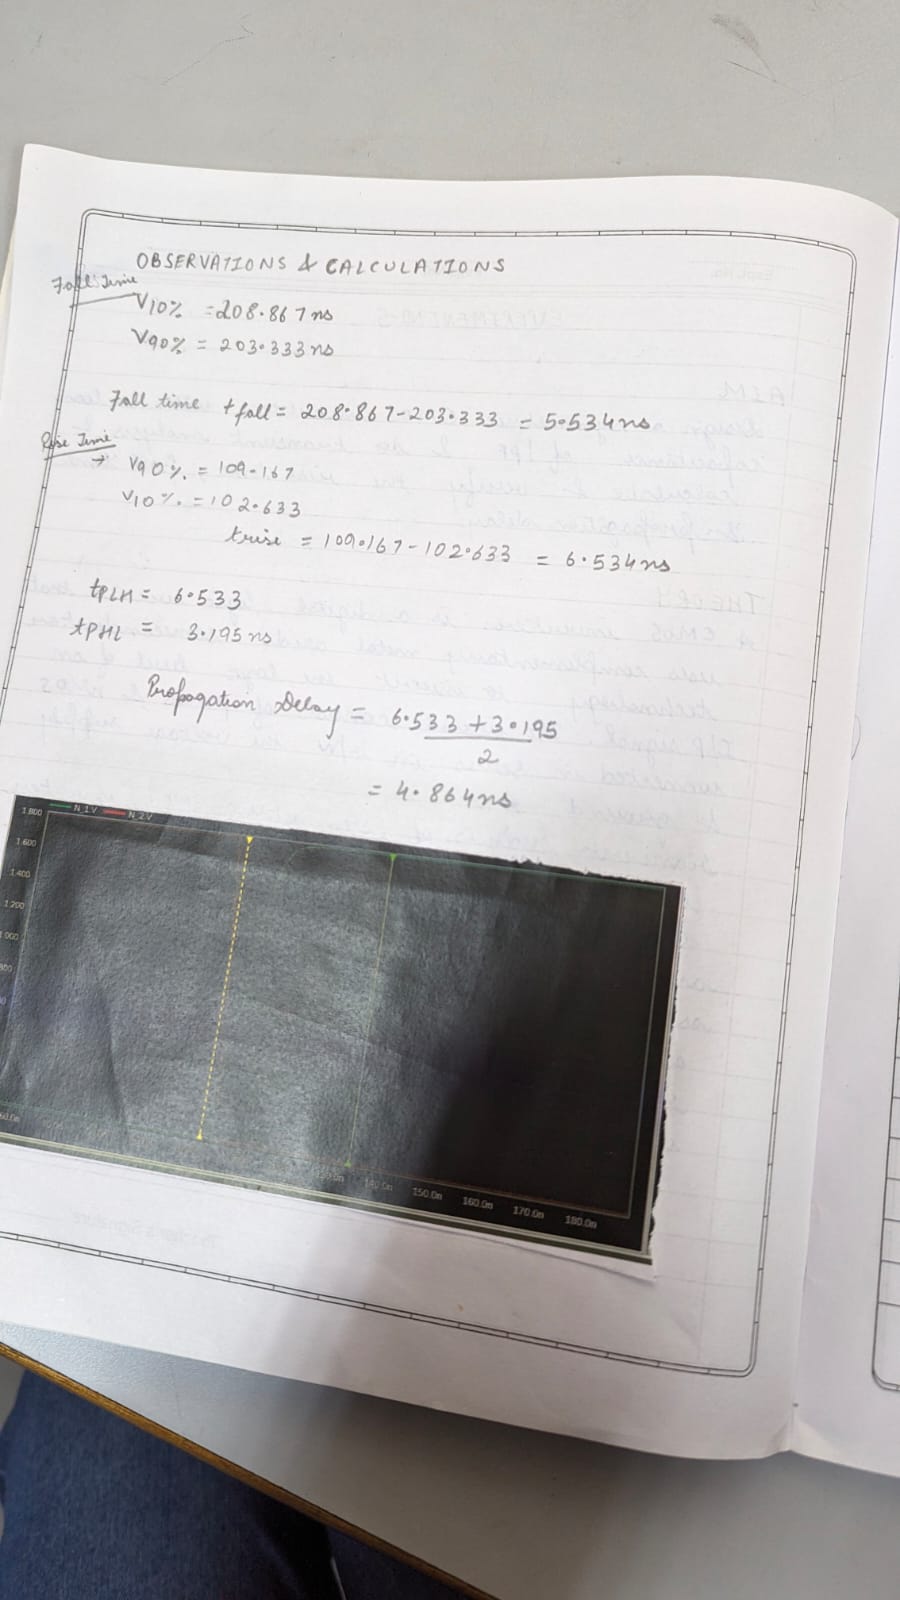 OBSERVATIONS & CALCULATIONS
Fall Time
V10% = 208.867 ns
V90% = 203.333 ns
Fall time tfall = 208.867-203.333 = 5.534 ns
Rise Time
→ V90% = 109.167
V10% = 102.633
trise = 109.167-102.633 = 6.534 ns
tPLH = 6.533
tPHL = 3.195 ns
Propagation Delay = 6.533 + 3.195
2
= 4.864 ns
N_1 V N_2 V
1.800
1.600
1.400
1.200
140.0n 150.0n 160.0n 170.0n 180.0n